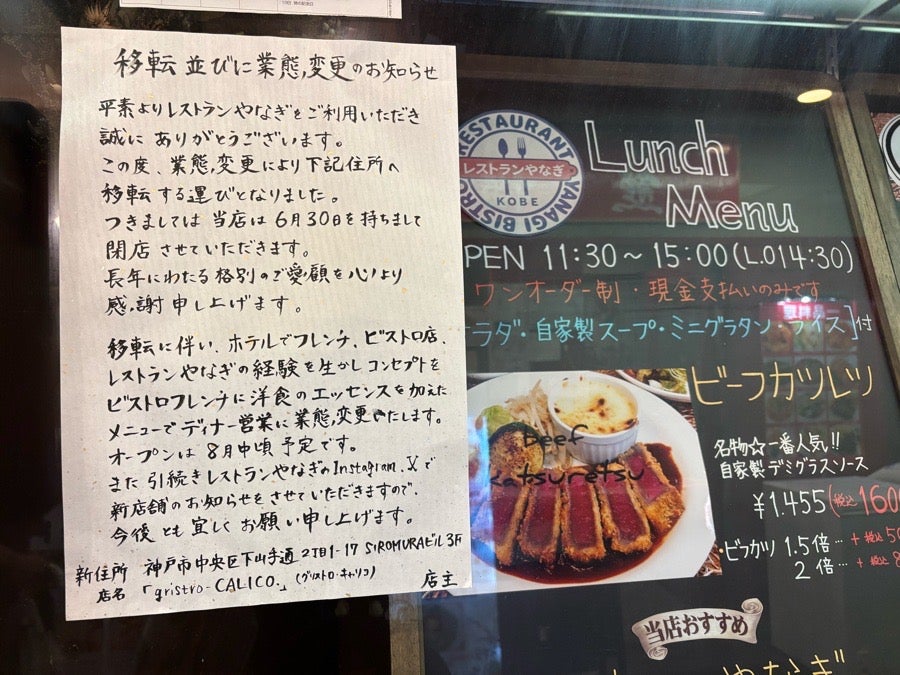 移転並びに業態変更のお知らせ
平素よりレストランやなぎをご利用いただき
誠にありがとうございます。
この度、業態変更により下記住所へ
移転する運びとなりました。
つきましては当店は6月30日を持ちまして
閉店させていただきます。
長年にわたる格別のご愛顧を心より
感謝申し上げます。
移転に伴い、ホテルでフレンチ、ビストロ店、
レストランやなぎの経験を生かしコンセプトを
ビストロフレンチに洋食のエッセンスを加えた
メニューでディナー営業に業態変更いたします。
オープンは8月中頃予定です。
また引続きレストランやなぎのInstagram、Xで
新店舗のお知らせをさせていただきますので、
今後とも宜しくお願い申し上げます。
新住所 神戸市中央区下山手通2丁目1-17 SIROMURAビル3F
店名「gristro-CALICO.」(グリストロ・キャリコ) 店主
RESTAURANT
レストランやなぎ
KOBE
YANAGI BISTRO
Lunch
Menu
PEN 11:30~15:00(L.O14:30)
ワンオーダー制・現金支払いのみです
ラダ・自家製スープ・ミニグラタン・ライス]付
ビーフカツレツ
Beef
Katsuretsu
名物☆一番人気!!
自家製デミグラスソース
¥1.455(税込160
・ビフカツ 1.5倍…+税込50
2倍…+税込8
当店おすすめ